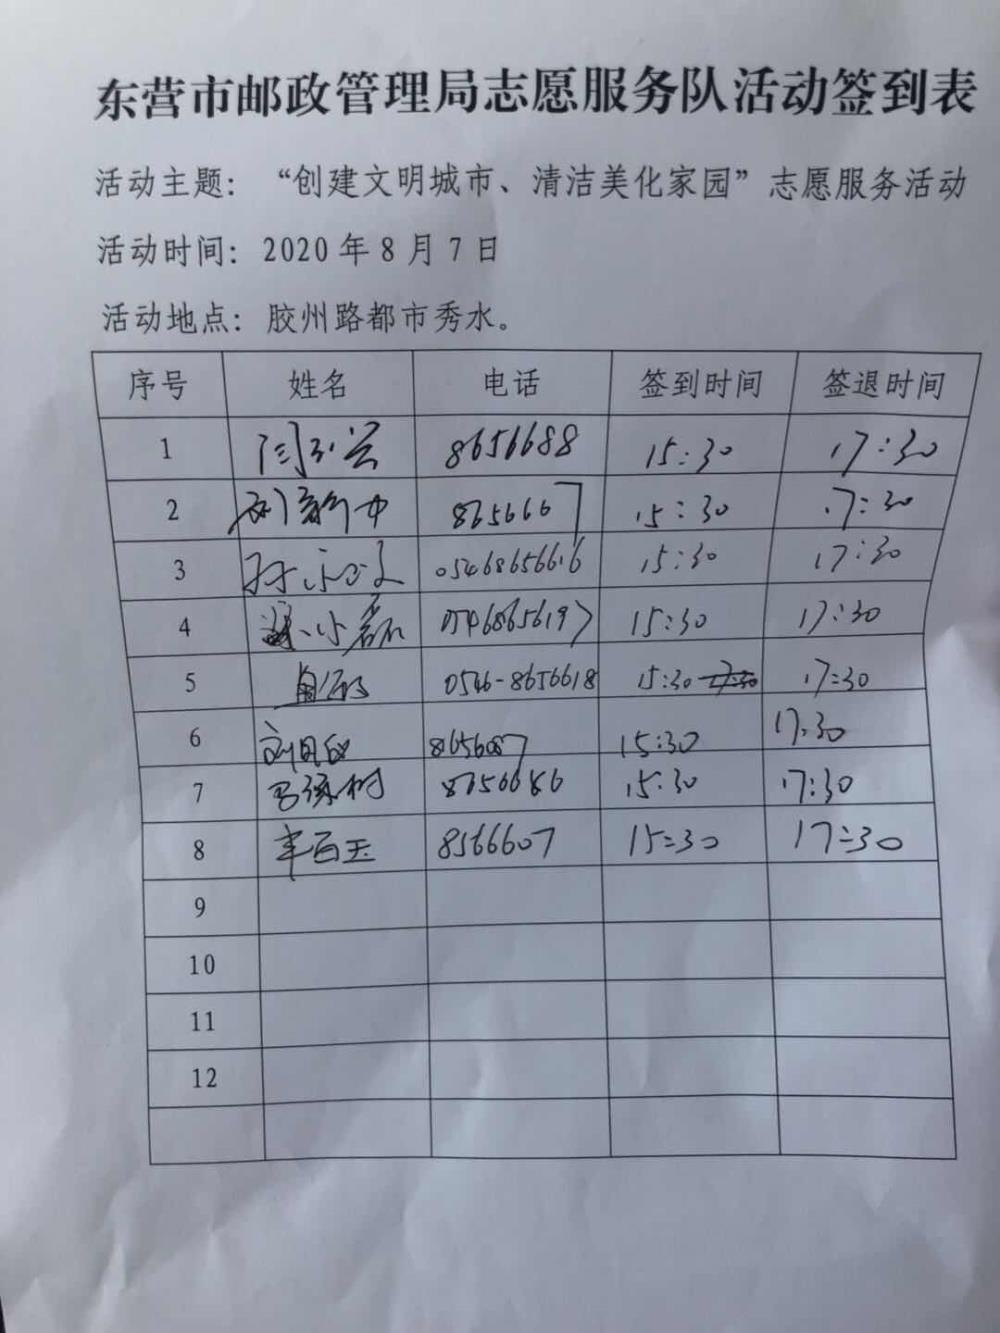 东营市邮政管理局志愿服务队活动签到表
活动主题：“创建文明城市、清洁美化家园”志愿服务活动
活动时间：2020年8月7日
活动地点：胶州路都市秀水。
序号 姓名 电话 签到时间 签退时间
1 8656688 15:30 17:30
2 8656667 15:30 17:30
3 05468656616 15:30 17:30
4 小磊 05468656197 15:30 17:30
5 0546-8656618 15:30 17:30
6 8656087 15:30 17:30
7 树 8656686 15:30 17:30
8 百玉 8566607 15:30 17:30
9
10
11
12